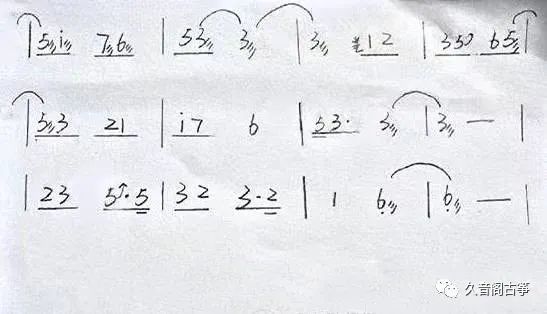 | 5 i 7 6 | 5 3 3 | 3 1 2 | 3 5 6 5 |
| 5 3 2 1 | i 7 6 | 5 3 · 3 | 3 — |
| 2 3 5 · 5 | 3 2 3 · 2 | 1 6 | 6 — |
久音阁古筝